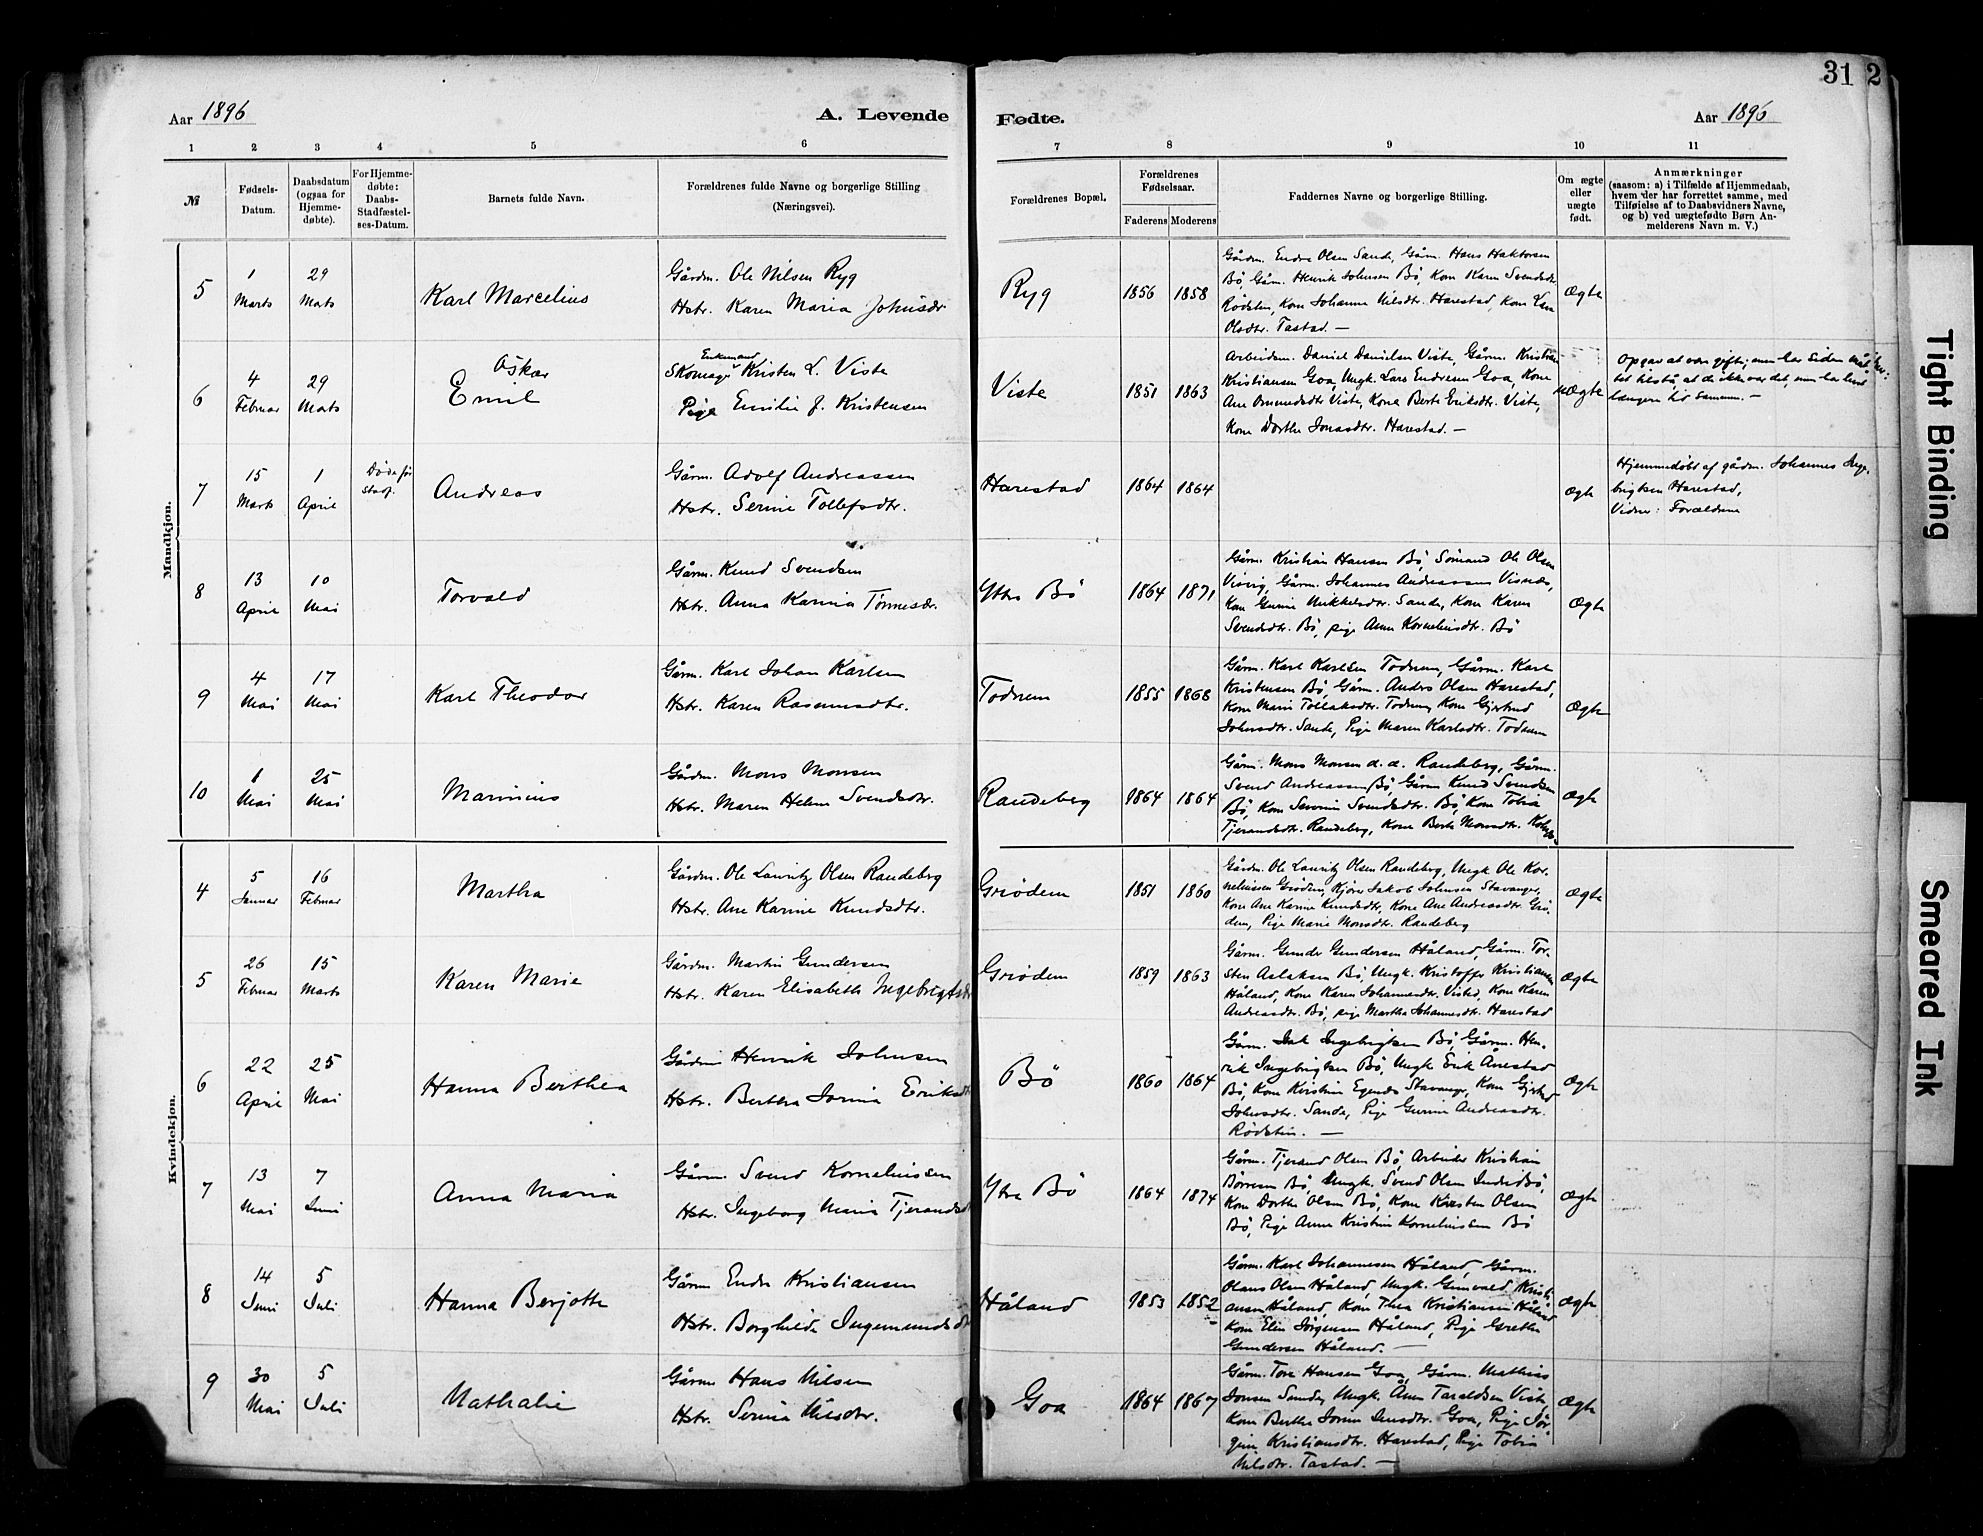 31 2
Aar 1896 A. Levende Fødte. Aar 1896
1 2 3 4 5 6 7 8 9 10 11
№
Fødsels-Datum.
Daabsdatum (ogsaa for Hjemme-døbte).
For Hjemme-døbte: Daabs-Stadfæstel-ses-Datum.
Barnets fulde Navn.
Forældrenes fulde Navne og borgerlige Stilling
(Næringsvei).
Forældrenes Bopæl.
Forældrenes Fødselsaar.
Faderens Moderens
Faddernes Navne og borgerlige Stilling.
Om ægte eller uægte født.
Anmærkninger
(saasom: a) i Tilfælde af Hjemmedaab,
hvem der har forrettet samme, med
Tilføielse af to Daabsvidners Navne,
og b) ved uægtefødte Børn An-
melderens Navn m. V.)
Mandkjøn.
5
1 Marts
29 Marts
Karl Marcelius
Gårdm. Ole Nilsen Ryg
Hstr. Karen Maria Johnsdr
Ryg
1856 1858
Gårdm. Endre Olsen Sande, Gårm. Hans Haktorsen
Bö, Gårm. Henrik Johnsen Bö, Kone Karen Svendsdr.
Rödsten, Kone Johanne Nilsdtr. Harestad, Kone
Olsdtr. Tastad. —
Ægte
6
4 Februar
29 Marts
Oskar
Emil
Enkemand
Skomager Kristen L. Viste
Pige Emilie J. Kristensen
Viste
1851 1863
Arbeidsm. Daniel Danielsen Viste, Gårm. Kristian
Kristiansen Goa, Ungk. Lars Endresen Goa, Kone
Ane Ommedsdtr Viste, Kone Berte Eriksdtr. Viste,
Kone Dorthe Jonasdtr. Harestad. —
uÆgte
Opgav at være gifte; men har siden måt-
tet tilstå, at de ikke var det, men har levet
længere tid sammen. —
7
15 Marts
1 April
Döde før
Stadf.
Andreas
Gårm. Adolf Andreassen
Hstr. Serine Tollefsdtr.
Harestad
1864 1864
Ægte
Hjemmedöbt af gårdm. Johannes Inge-
brigtsen Harestad,
Vidner: Forældrene
8
13 April
10 Mai
Torvald
Gårm. Knud Svendsen
Hstr. Anna Karina Tönnesdr.
Ytre Bö
1864 1871
Gårm. Kristian Hansen Bö, Sömand Ole Olsen
Visvig, Gårm. Johannes Andreassen Visnæs,
Kone Gurine Mikkelsdtr. Sande, Kone Karen
Svendsdtr. Bö, pige Anne Korneliusdtr. Bö
Ægte
9
4 Mai
17 Mai
Karl Theodor
Gårm. Karl Johan Karlsen
Hstr. Karen Rasmusdtr.
Todnem
1855 1868
Gårm. Karl Karlsen Todnem, Gårm. Karl
Kristensen Bö, Gårm. Anders Olsen Harestad,
Kone Marie Tollaksdtr. Todnem, Kone Gjertrud
Johnsdtr. Sande, Pige Maren Karlsdtr. Todnem
Ægte
10
1 Mai
25 Mai
Marinius
Gårdm. Mons Monsen
Hstr. Maren Helene Svendsdtr.
Randeberg
1864 1864
Gårm. Mons Monsen d. æ. Randeberg, Gårm.
Svend Andreassen Bö, Gårm Knud Svendsen
Bö, Kone Serine Svendsdtr. Bö, Kone Tobia
Tjerandsdtr. Randeberg, Kone Berte Monsdtr.
Ægte
Kvindekjøn.
4
5 Januar
16 Februar
Martha
Gårdm. Ole Lauritz Olsen Randeberg
Hstr. Ane Karine Knudsdtr.
Grödem
1851 1860
Gårdm. Ole Lauritz Olsen Randeberg, Ungk Ole Kor-
neliussen Grödem, Kjører Jakob Johnsen Stavanger,
Kone Ane Karine Knudsdtr, Kone Ane Andreasdtr. Grö-
dem, Pige Marie Monsdtr. Randeberg
Ægte
5
26 Februar
15 Marts
Karen Marie
Gårdm. Martin Gundersen
Hstr. Karen Elisabeth Ingebrigtsdr
Grödem
1859 1863
Gårm. Gunder Gundersen Håland, Gårm. Tor-
sten Aslaksen Bö, Ungk. Kristoffer Kristiansen
Håland, Kone Karen Johannesdtr. Visted, Kone Karen
Andreasdtr. Bö, pige Martha Johannesdtr. Harestad
Ægte
6
22 April
25 Mai
Hanna Berthea
Gårdm Henrik Johnsen
Hstr. Bertha Jorine Eriksdtr
Bö
1860 1864
Gårm. Isak Ingebrigtsen Bö, Gårm. Hen-
rik Ingebrigtsen Bö, Ungk Erik Anestad
Bö, Kone Kristine Egends Stavanger, Kone Gjertrud
Johnsdtr. Sande, Pige Gurine Andreasdtr.
Rödstin. —
Ægte
7
13 Mai
7 Juni
Anna Maria
Gårm. Svend Korneliussen
Hstr. Ingeborg Maria Tjerandsdtr
Ytre Bö
1864 1874
Gårm. Tjerand Olsen Bö, Arbeider Kristian
Börresen Bö, Ungk. Svend Olsen Indre Bö,
Kone Dorthe Olsen Bö, Kone Kirsten Olsen
Bö, Pige Anne Kristine Korneliussen Bö
Ægte
8
14 Juni
5 Juli
Hanna Berjotte
Gårm Endre Kristiansen
Hstr. Borghilde Ingemundsdtr
Håland
1853 1852
Gårm. Karl Johannesen Håland, Gårm.
Olaus Olsen Håland, Ungk. Gunvald Kristi-
ansen Håland, Kone Thea Kristiansen Håland
Kone Elin Jörgensen Håland, Pige Grethe
Gundersen Håland. —
Ægte
9
30 Mai
5 Juli
Nathalie
Gårm Hans Nilsen
Hstr. Serina Nilsdtr.
Goa
1864 1867
Gårm. Tore Hansen Goa, Gårm. Mathias
Jonsen Sande, Ungk. Åmn Taraldsen Viste,
Kone Berthe Jorine Jensdtr. Goa, Pige Jör-
gine Kristiansdtr. Harestad, Pige Tobia
Nilsdtr. Tastad. —
Ægte
Tight Binding
Smeared Ink